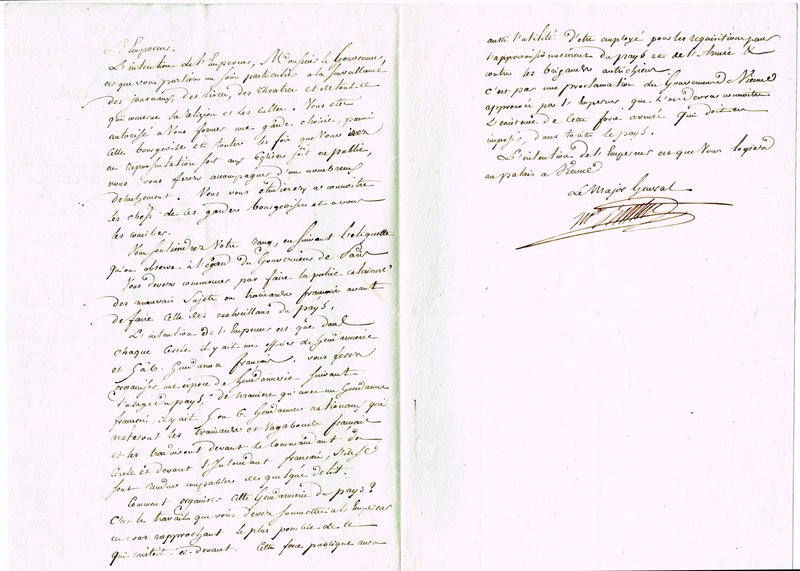 L'Empereur.
L'intention de l'Empereur, Monsieur le Gouverneur,
est que vous portiez un soin particulier à la surveillance
des journaux, des livres, des théatres et de tout ce
qui concerne la religion et les cultes. Vous êtes
autorisé à vous former une garde choisie, parmi
cette bourgeoisie et toutes les fois que vous irez
en représentation soit aux églises soit en public,
vous vous ferez accompagner d'un nombreux
détachement. Vous vous étudierez à connoitre
les chefs de ces gardes bourgeoises et à vous
les concilier.
Vous soutiendrez votre rang, en suivant l'étiquette
qu'on observe à l'égard du Gouverneur de Paris
Vous devez commencer par faire la police
des mauvais sujets ou traineurs français avant
de faire celle des malveillans du pays.
L'intention de l'Empereur est que dans
chaque Cercle il y ait un officier de Gendarmerie
et 5 à 6 Gendarmes français. vous ferez
organiser une espèce de Gendarmerie suivant
l'usage du pays, de manière qu'avec un Gendarme
français, il y ait 5 ou 6 Gendarmes nationaux qui
arrêteront les traineurs et vagabonds français
et les traduiront devant le Commandant du
Cercle et devant l'Intendant français, s'ils se
sont rendus coupables de quelque délit.
Comment organiser cette Gendarmerie du pays?
C'est le travail que vous devez soumettre à l'Empereur
en vous rapprochant le plus possible de ce
qui existoit ci-devant. Cette force publique aura
aussi l'utilité d'être employée pour les réquisitions pour
l'approvisionnement du pays et de l'armée &
contre les brigands autrichiens.
c'est par une proclamation du Gouverneur de Vienne
approuvée par l'Empereur, que l'on devra connoitre
l'existence de cette force armée qui doit en
imposer, dans toute le pays.
L'intention de l'Empereur est que vous logiez
au palais à Vienne
Le Major Général